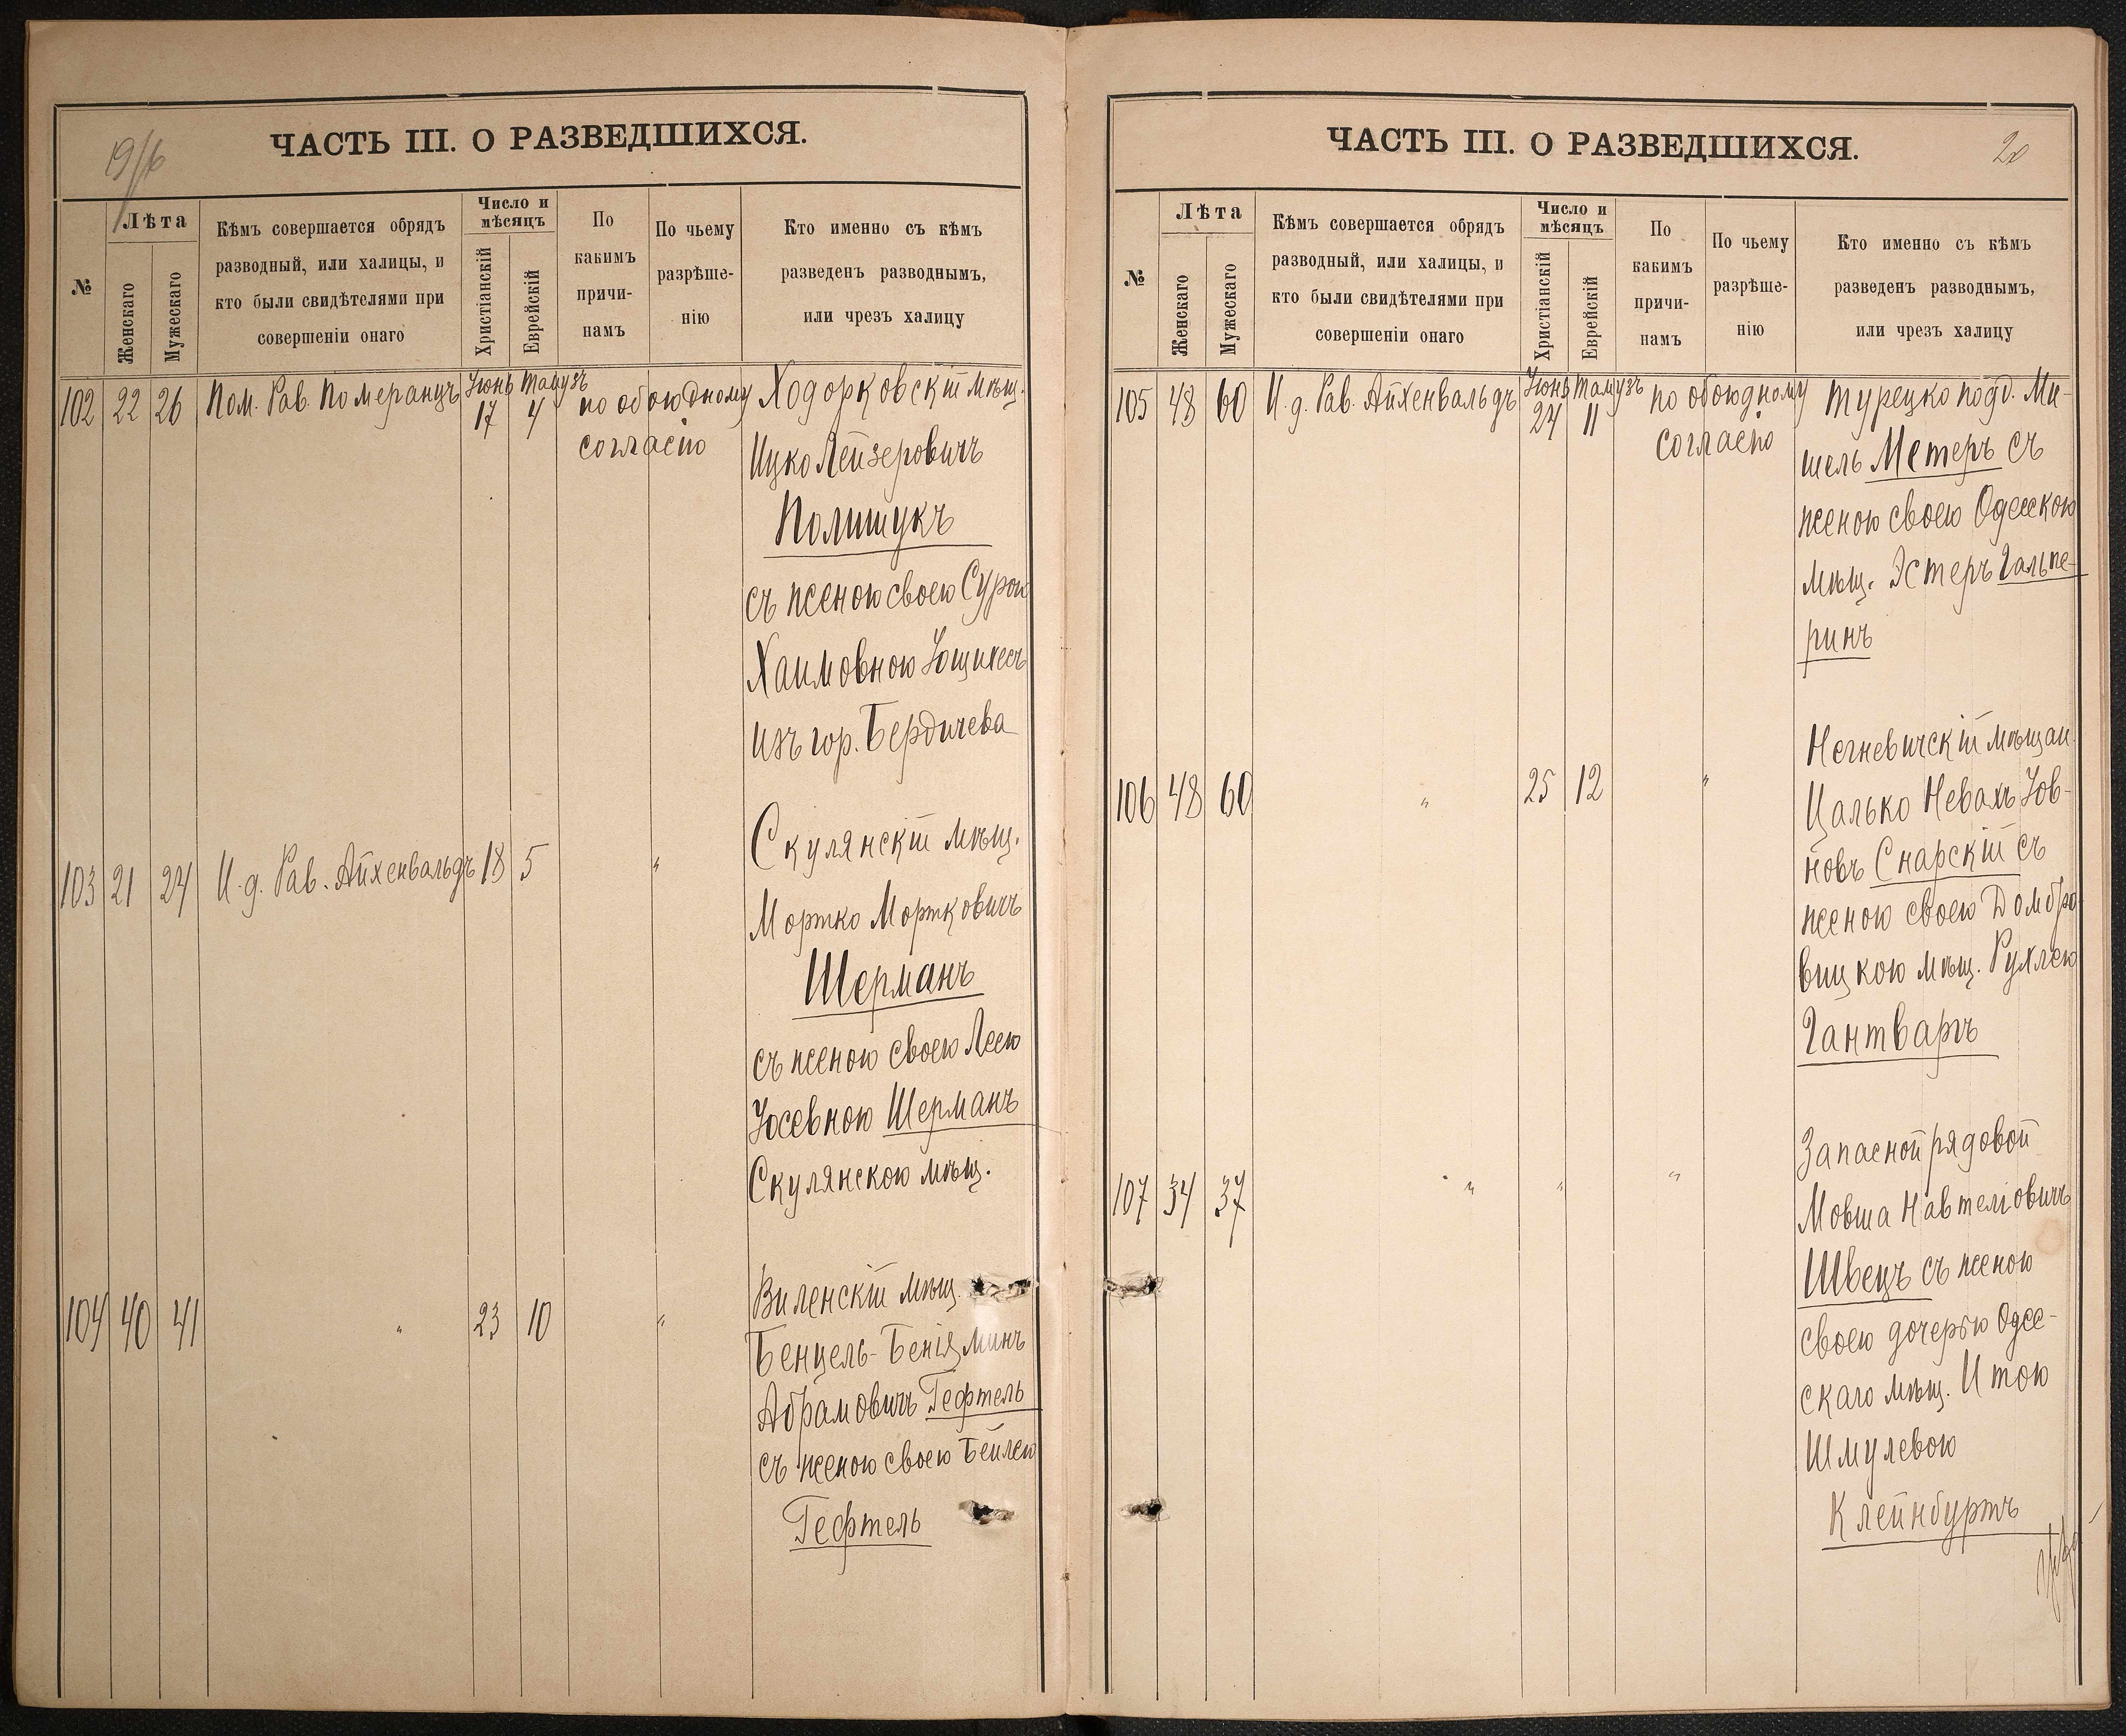 19/16
ЧАСТЬ III. О РАЗВЕДШИХСЯ.
№
Лѣта
Женскаго
Мужескаго
Кѣмъ совершается обрядъ
разводный, или халицы, и
кто были свидѣтелями при
совершеніи онаго
Число и
мѣсяцъ
Христіанскій
Еврейскій
По
какимъ
причи-
намъ
По чьему
разрѣше-
нію
Кто именно съ кѣмъ
разведенъ разводнымъ,
или чрезъ халицу
102 22 26 Пом. Рав. Померанцъ Іюнь 17 Тамузъ 4 по обоюдному
согласію
Ходорковскій мѣщ.
Ицко Лейзеровичъ
Полищукъ
съ женою своею Сурою
Хаимовною
изъ гор. Бердичева
103 21 24 И.д. Рав. Айхенвальдъ 18 5 "
Скулянскій мѣщ.
Мортко Мортковичъ
Шерманъ
съ женою своею Леею
Іосевною Шерманъ
Скулянскою мѣщ.
104 40 41 " 23 10 "
Виленскій мѣщ.
Бенцель-Беніяминъ
Абрамовичъ Гефтель
съ женою своею Бейлею
Гефтель
ЧАСТЬ III. О РАЗВЕДШИХСЯ.
20
№
Лѣта
Женскаго
Мужескаго
Кѣмъ совершается обрядъ
разводный, или халицы, и
кто были свидѣтелями при
совершеніи онаго
Число и
мѣсяцъ
Христіанскій
Еврейскій
По
какимъ
причи-
намъ
По чьему
разрѣше-
нію
Кто именно съ кѣмъ
разведенъ разводнымъ,
или чрезъ халицу
105 48 60 И.д. Рав. Айхенвальдъ Іюнь 24 Тамузъ 11 по обоюдному
согласію
Турецко подд. Ми-
шель Метеръ съ
женою своею Одесскою
мѣщ. Эстеръ Гальпе-
ринъ
106 48 60 " 25 12 "
Негневичскій мѣщан.
Цалько Невахъ Іов-
новъ Снарскій съ
женою своею Домбро
вицкою мѣщ. Рухлею
Гантваргъ
107 34 37 " " "
Запасной рядовой
Мовша Навтеліовичъ
Швецъ съ женою
своею дочерью Одес-
скаго мѣщ. Итою
Шмулевою
Клейнбуртъ